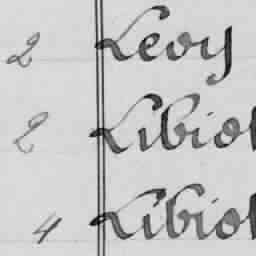 2 Levy
2 Libiot
4 Libiot